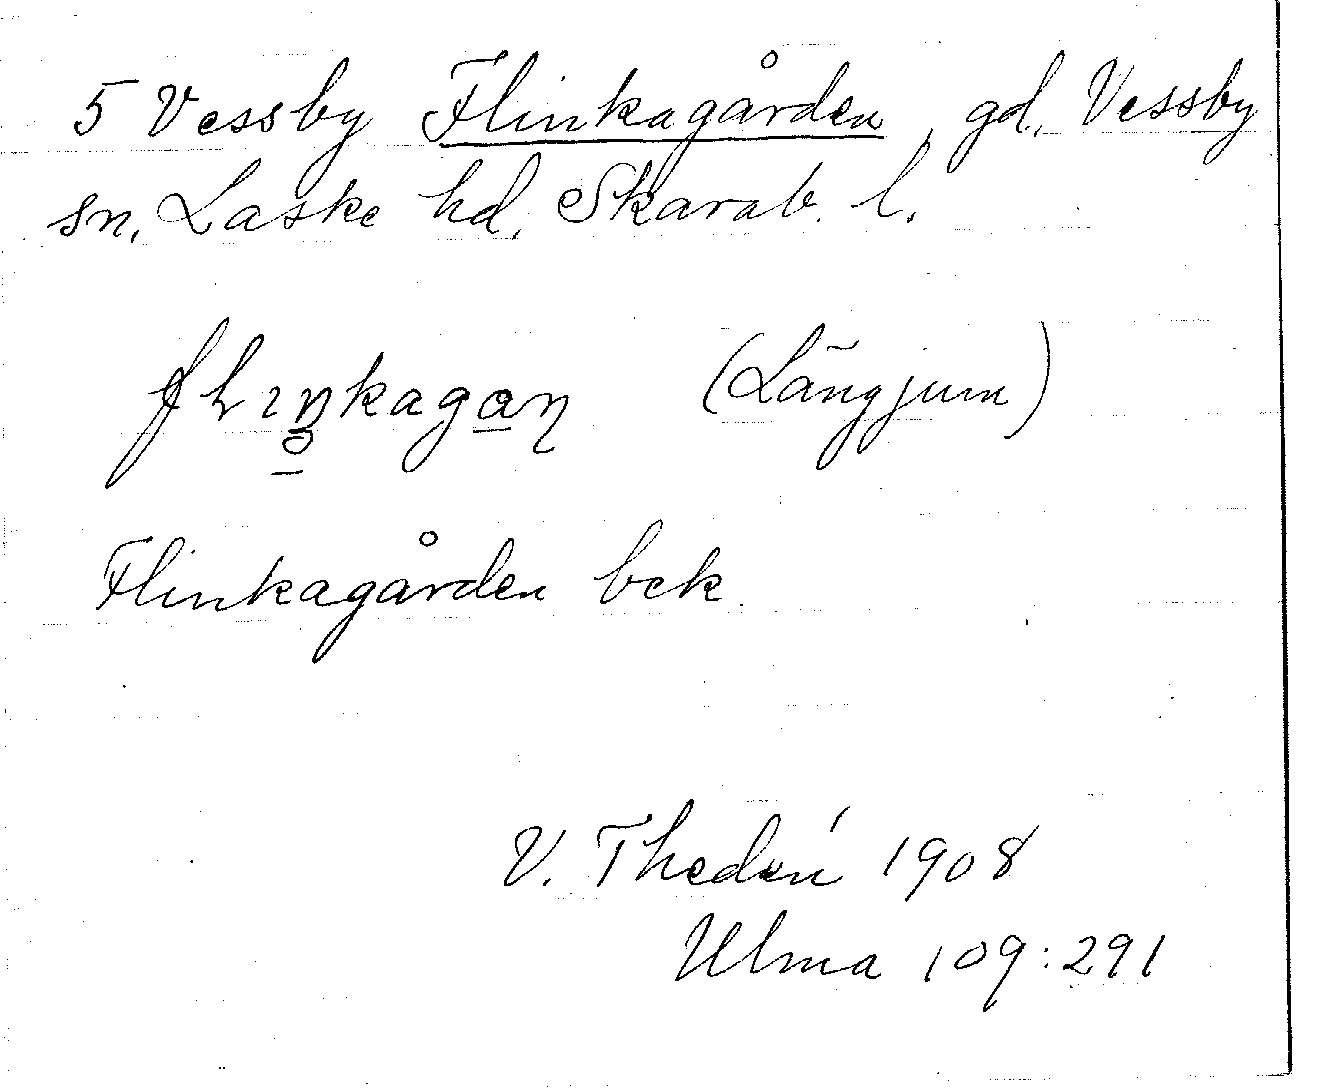 5 Vessby Flinkagården, gd, Vessby
sn, Laske hd, Skarab. l.
(Längjum)
Flinkagården bek.
V. Thedén 1908
Ulma 109:291